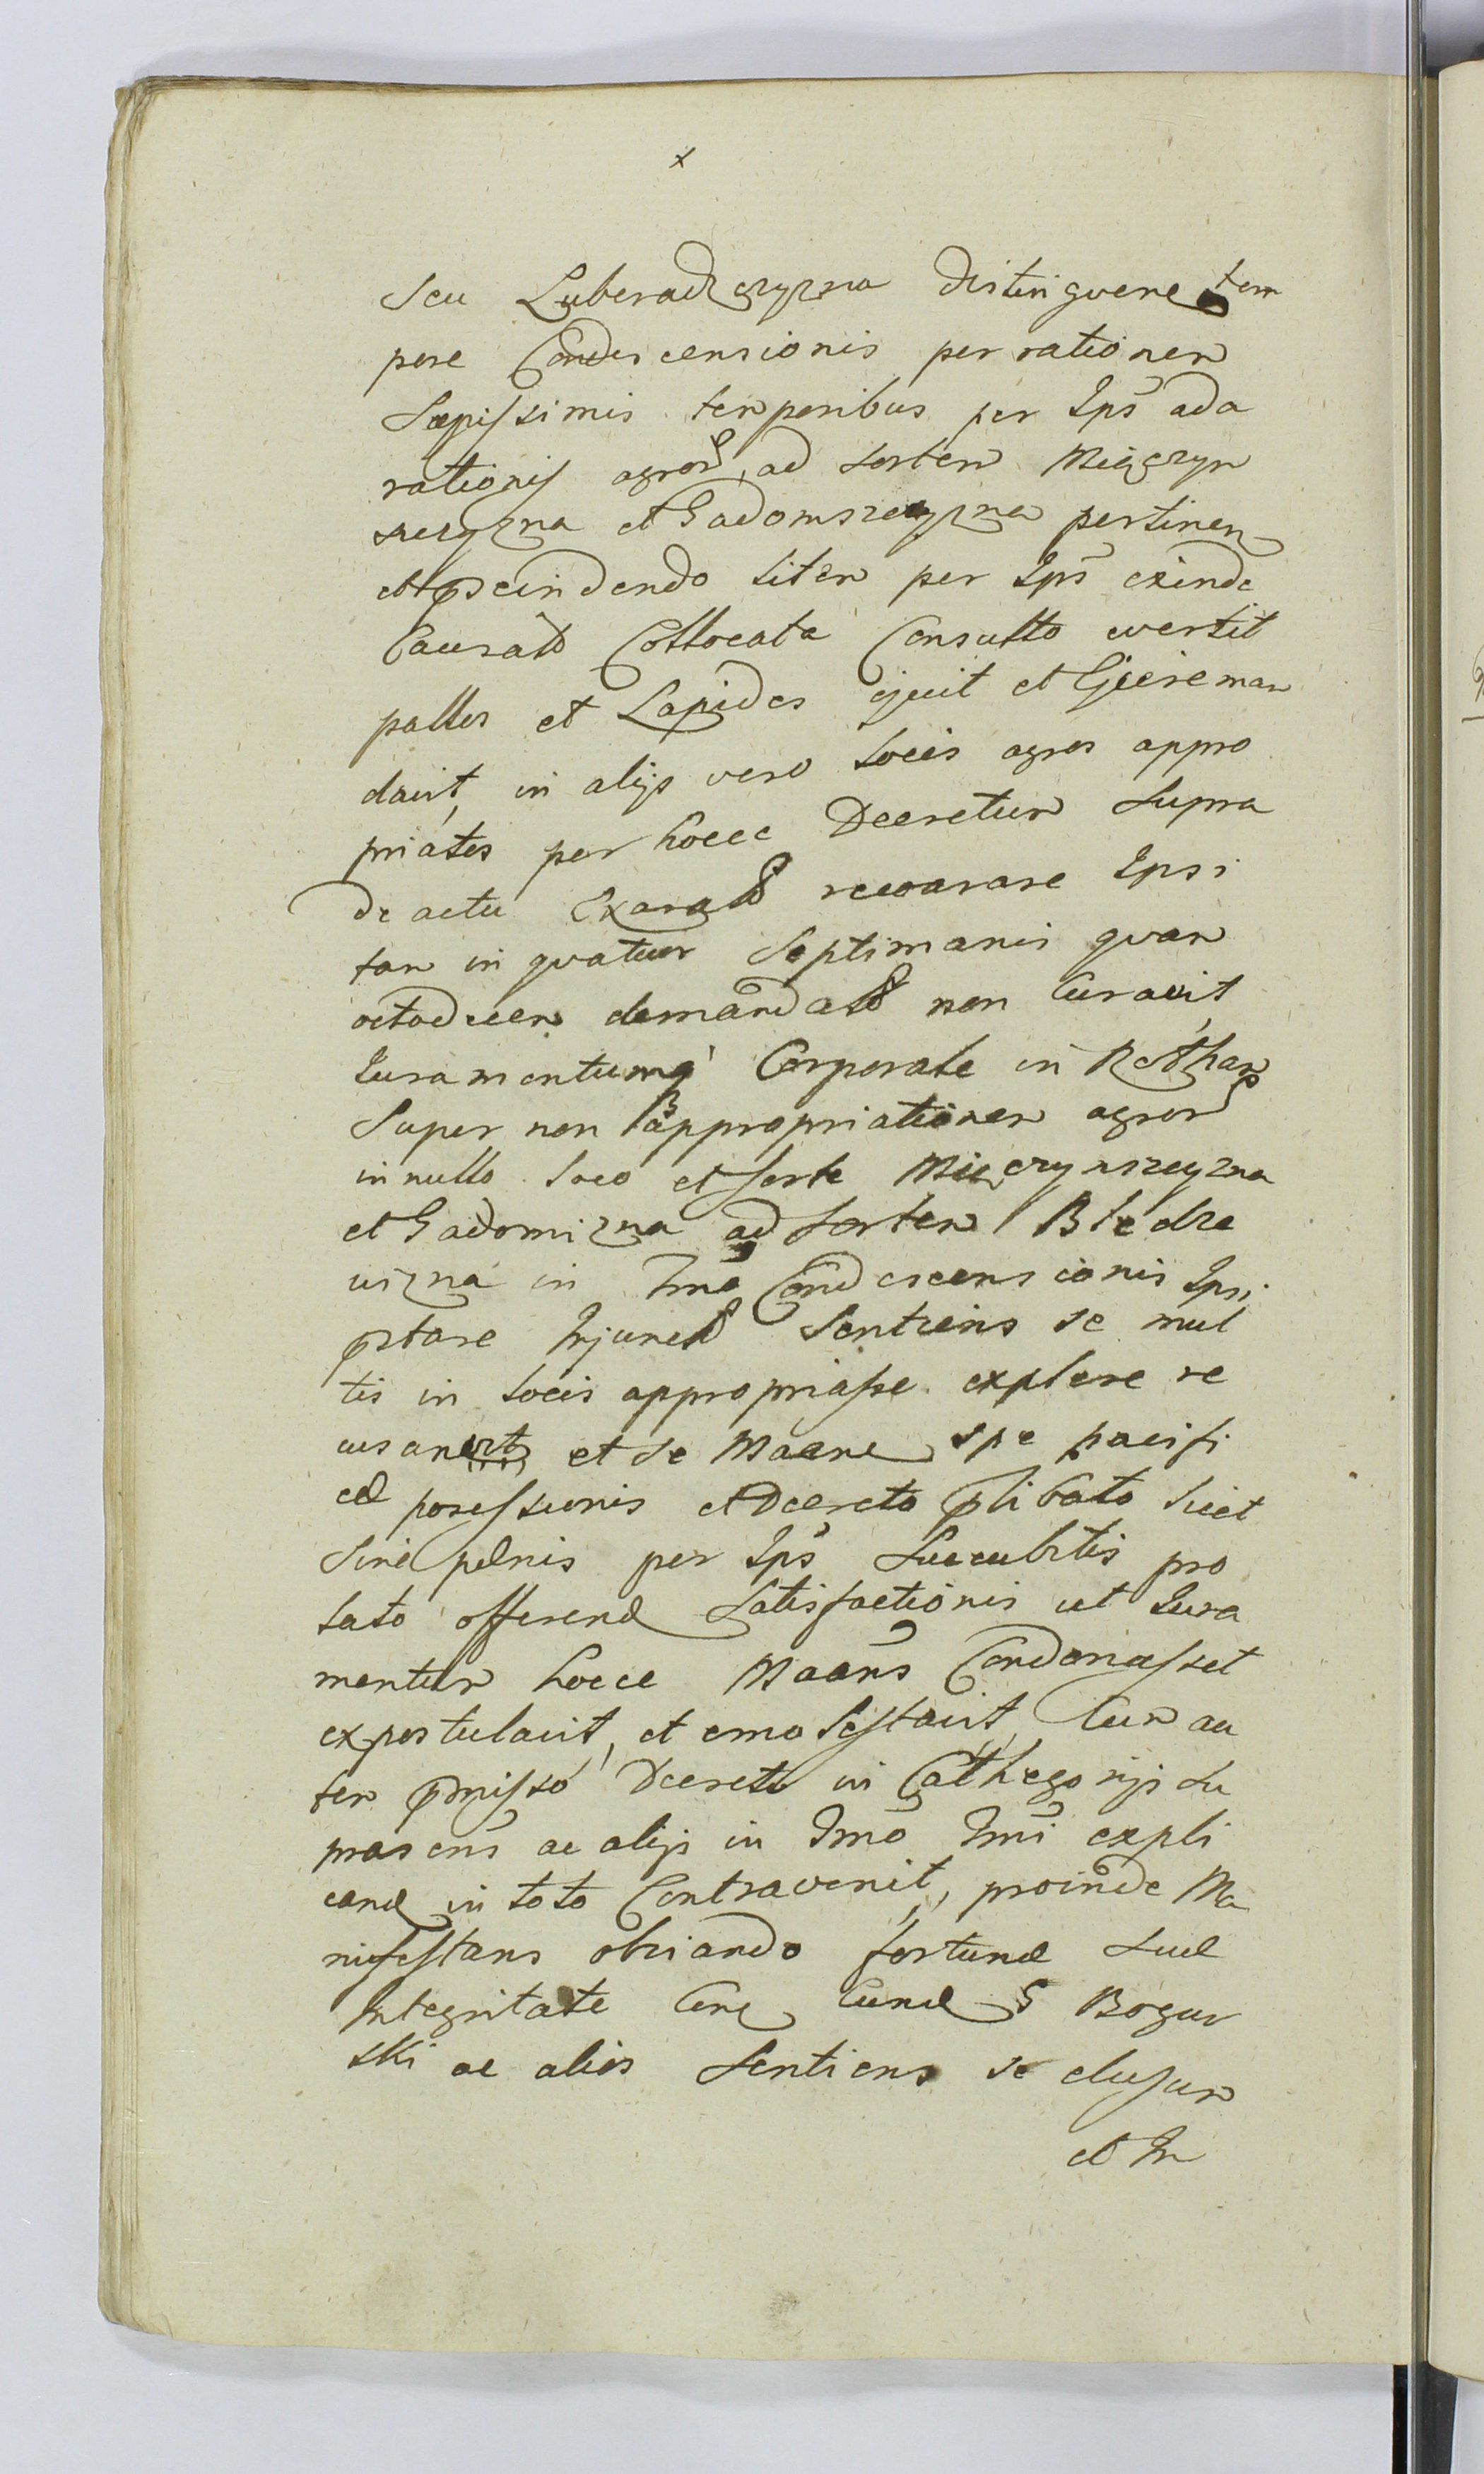 x
seu Luberadzczyzna distinguere tem
pore Condescensionis per rationem
Sæpissimis temporibus per Ips̃ ada
rationis agror ad sortem Miączyn
szczyzna et Gadomszczyzna pertinen
et pscindendo litem per Ips̃ exinde
Causata Collocata Consulto evertit
palles et Lapides ejecit et Ejicere man
davit, in alijs vero locis agros appro
priatos per hocce Decretum supra
de actu Exarat restaurare Ipsi
tam in quatuor Septimanis quam
octodecem demandat non Curavit,
Juramentumq Corporale in Rotham
Super non appropriationem agror
in nullo loco et sorte Miączynszczyzna
et Gadomizna ad sortem Biedrz
uizna in Tmo Condescensionis Ipsi
pstare Injunct Sentiens se mul
tis in locis appropriasse explere re
cusavit et se Maane spe pacifi
cæ possessionis et Decreto plibato licet
Sine pænis per Ips̃ Succubitis pro
lato offerend Satisfactionis ut Jura
mentum hocce Maans̃ Condonasset
expostulavit, et emolestavit, Cum au
tem pmisso Decreto in Cathegorijs su
prascris̃ ac alijs in Tmo Tmi expli
cand in toto Contravenit, proinde Ma
nifestans obviando fortunæ suæ
Integritate Cone Cunæ G Bogur
ski ac alios Sentiens se elusum
et In